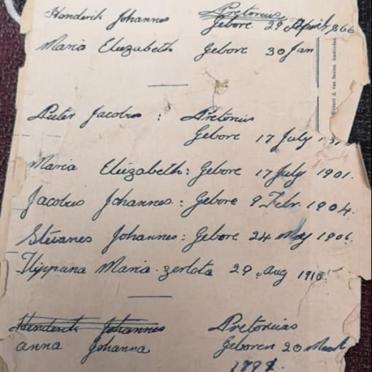 Henderik Johannes Pretorius
Gebore 29 April 1866
Maria Elizabeth Gebore 30 Jan
Pieter Jacobus : Pretorius
Gebore 17 July
Maria Elizabeth : Gebore 17 July 1901.
Jacobus Johannes : Gebore 9 Febr. 1904.
Stefanes Johannes : Gebore 24 May 1906.
Maria 29 Aug 1910
Henderik Johannes Pretorius
Anna Johanna Geboren 20